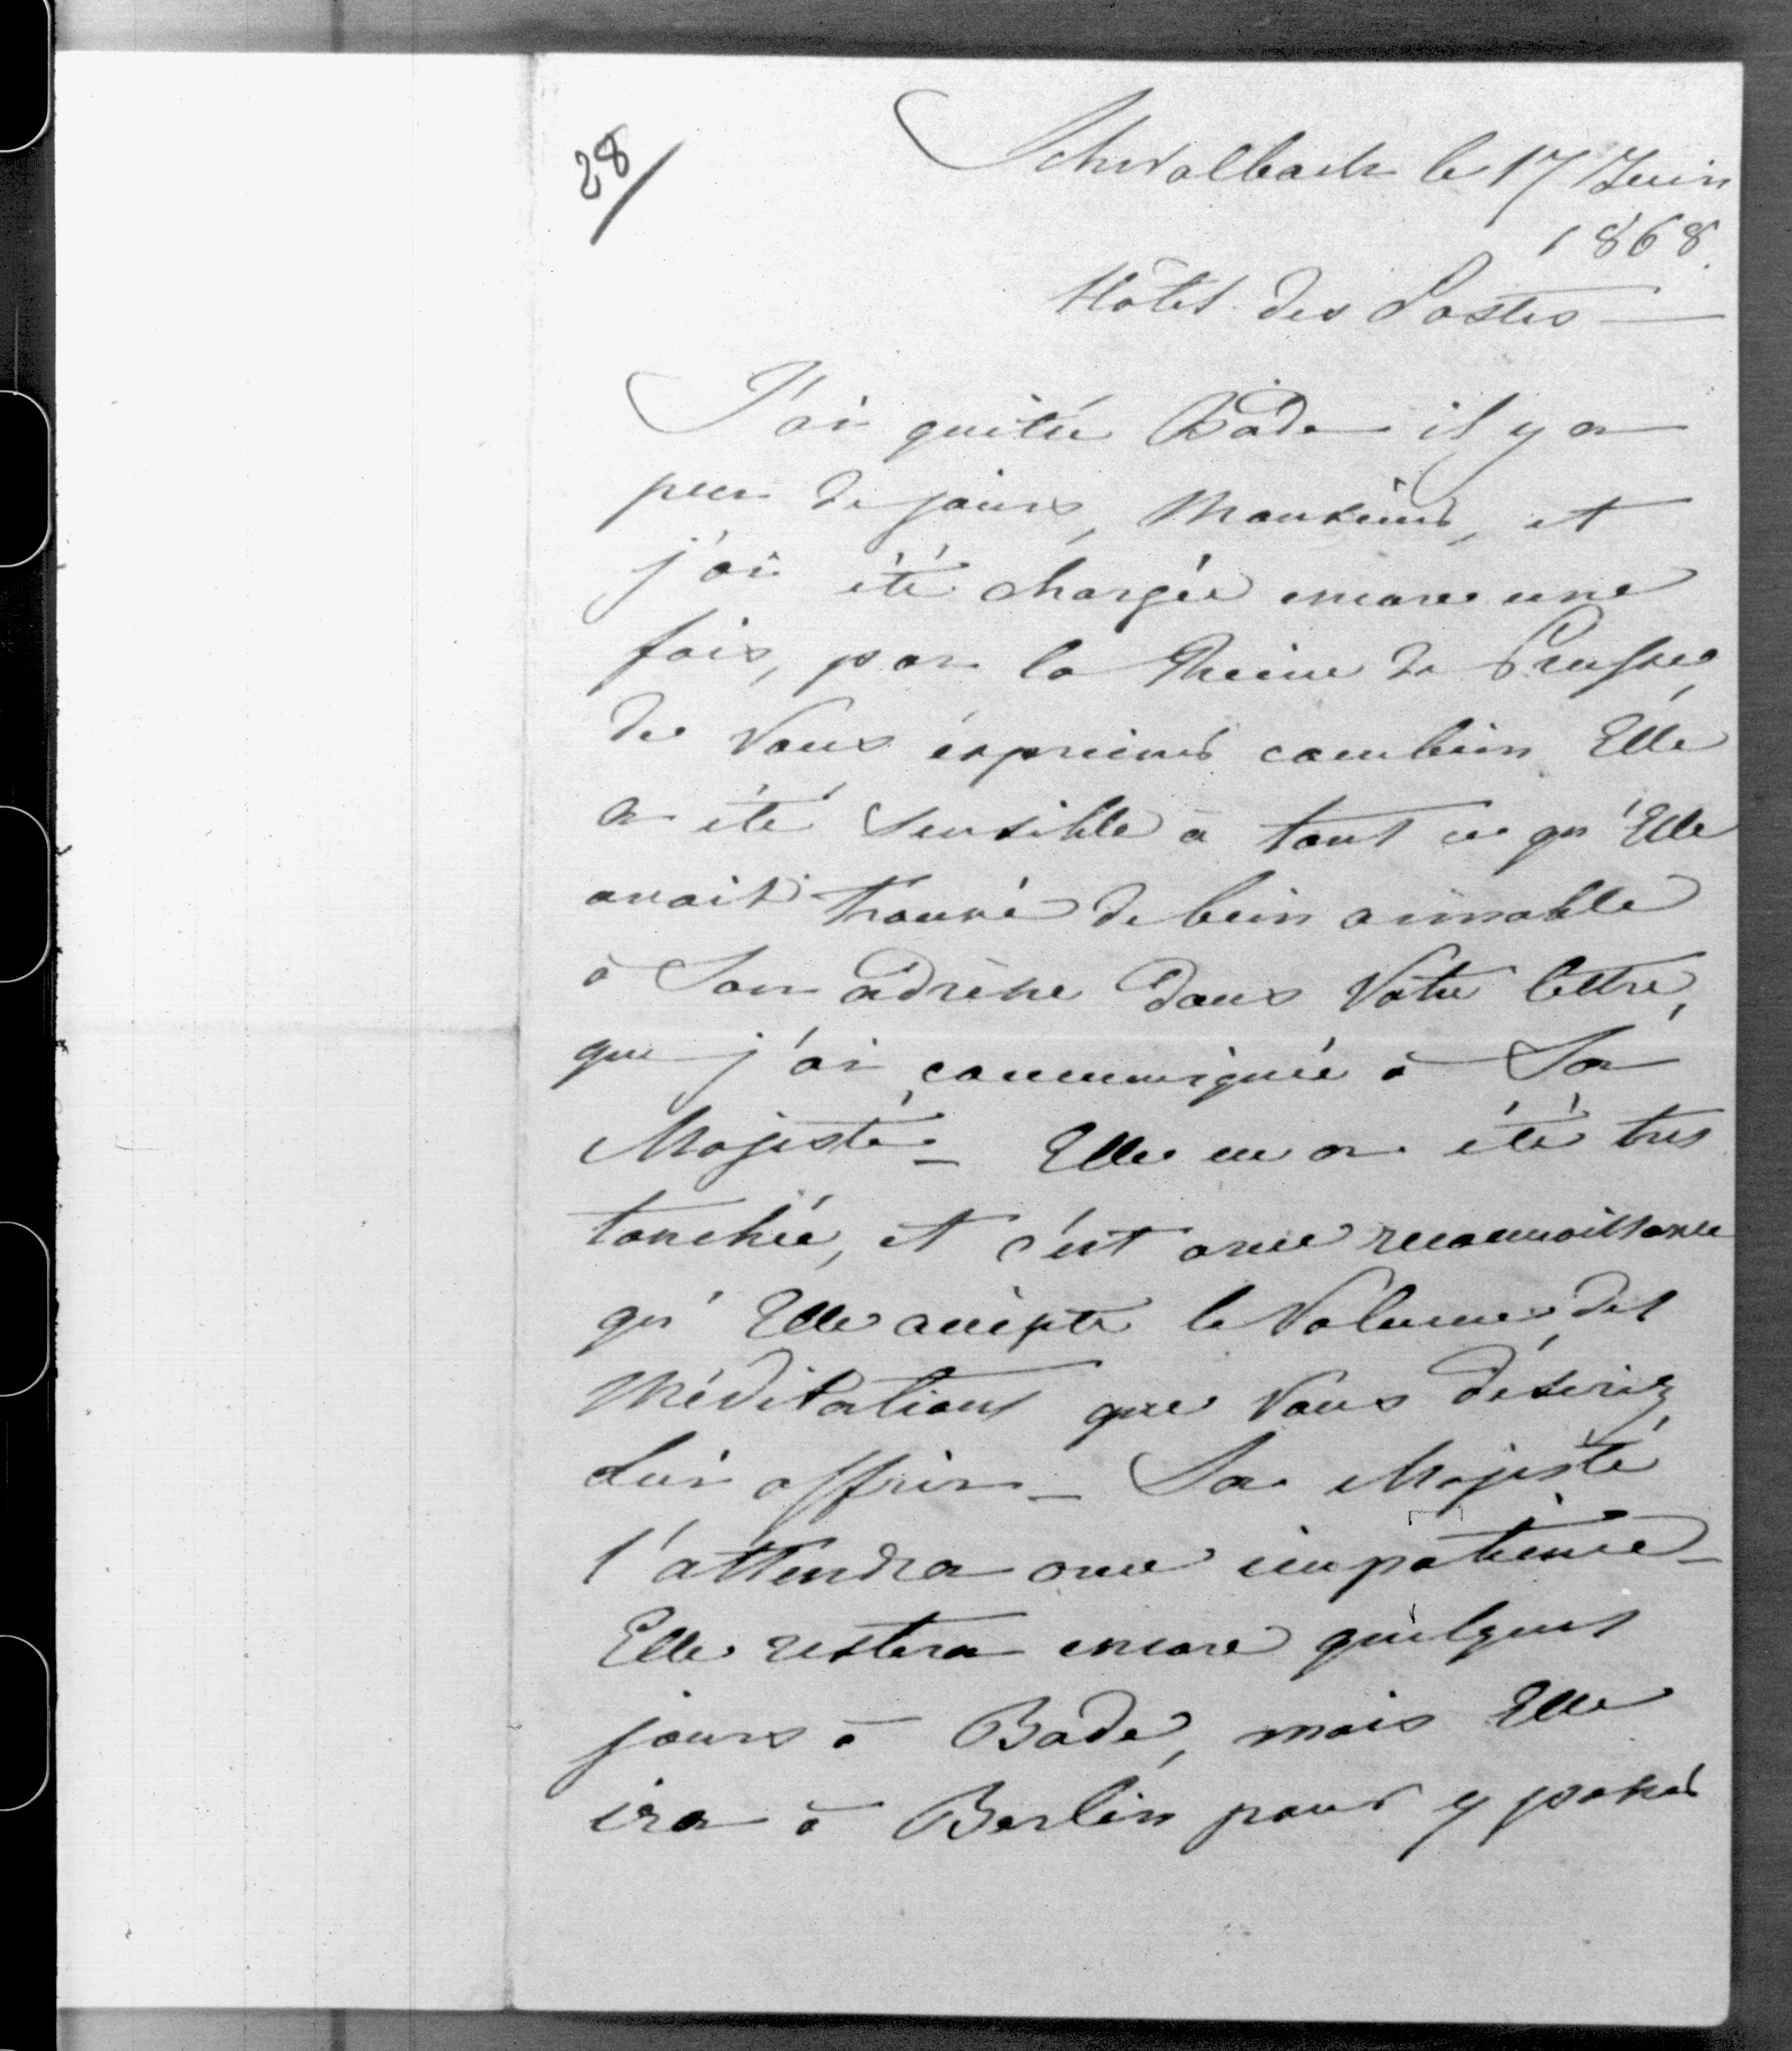 28
Schwalbach le 17 Juin
1868.
Hôtel des Postes —
J'ai quitté Bade il y a
peu de jours, Monsieur, et
j'ai été chargée encore une
fois, par la Reine de Prusse,
de Vous éxprimer combien Elle
a été sensible à tout ce qu'Elle
avait trouvé de bien aimable
à Son adrèsse dans Votre lettre,
que j'ai communiquée à Sa
Majesté - Elle en a été très
touchée, et c'est avec reconnoissance
qu'Elle accepte le Volume des
Méditations que Vous désiriez
Lui offrir - Sa Majesté
l'attendra avec impatience -
Elle restera encore quelques
jours à Bade, mais Elle
ira à Berlin pour y passer